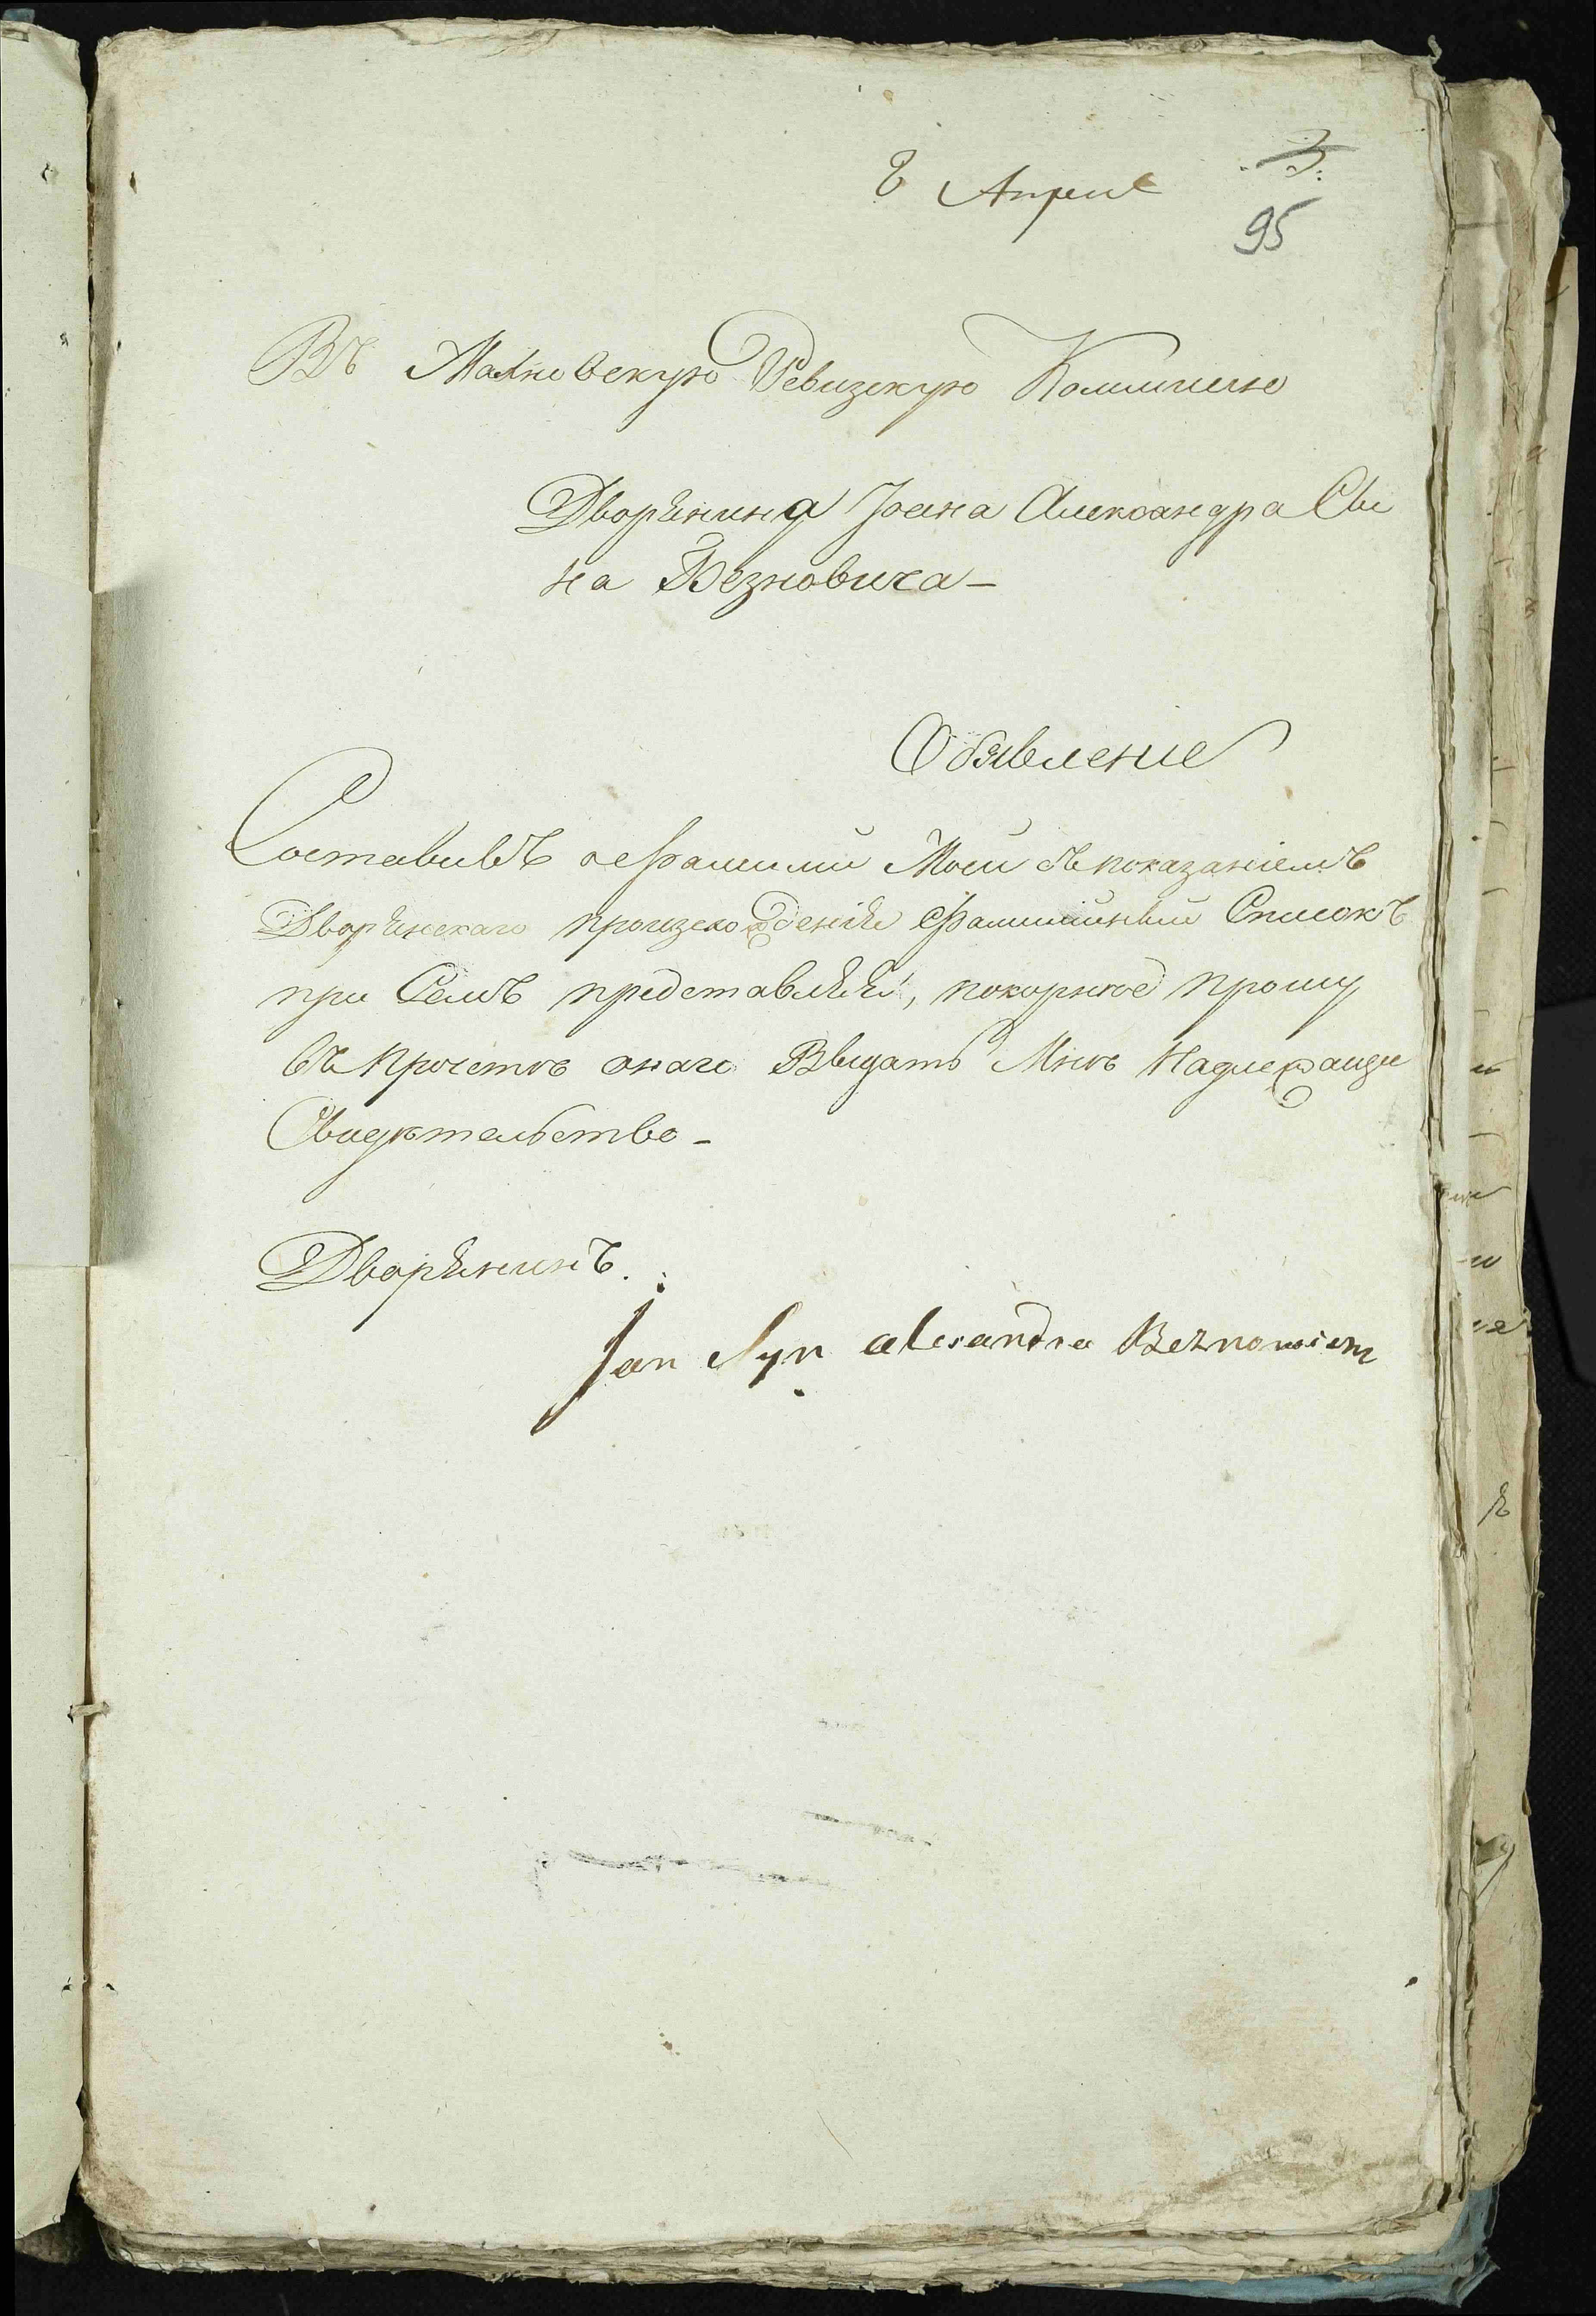 8 Апреля
3.
95
Въ Махновскую Ревизкую Коммисию
Дворянина Іоана Александра Сы
на Безновича –
Обявление
Составивъ о фамилии Моей съ показаніемъ
Дворянскаго произхождения фамилийный Списокъ
при Семъ представляя, покорное прошу
въ прочетѣ онаго Выдать Мнѣ Надлежаще
Свидѣтельство –
Дворянинъ.
Jan Syn alexandra Beznowicz